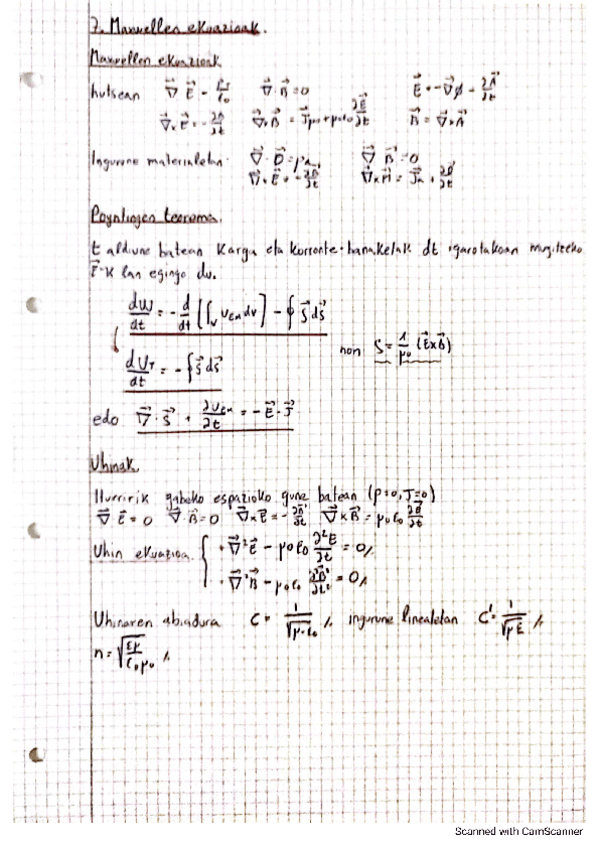 7. Maxwellen ekuazioak.
Maxwellen ekuazioak
hutsean ∇⃗·E⃗ = ρ/ε₀ ∇⃗·B⃗=0 E⃗=-∇⃗φ-∂A⃗/∂t
∇⃗×E⃗=-∂B⃗/∂t ∇⃗×B⃗ = J⃗μ₀+μ₀ε₀∂E⃗/∂t B⃗=∇⃗×A⃗
Ingurune materialetan: ∇⃗·D⃗=ρ ∇⃗·B⃗=0
∇⃗×E⃗=-∂B⃗/∂t ∇⃗×H⃗ = J⃗+∂D⃗/∂t
Poyntingen teorema.
t aldiune batean karga eta korronte-banaketak dt igarotakoan mugitzeko
F⃗-k lan egingo du.
dW/dt = -d/dt [∫ᵥ u_EM dv] - ∮ S⃗ ds⃗
non S⃗=1/μ₀ (E⃗×B⃗)
dU_T/dt = -∮S⃗ ds⃗
edo ∇⃗·S⃗ + ∂u_EM/∂t = -E⃗·J⃗
Uhinak
Iturririk gabeko espazioko gune batean (ρ=0, J=0)
∇⃗·E⃗=0 ∇⃗·B⃗=0 ∇⃗×E⃗=-∂B⃗/∂t ∇⃗×B⃗=μ₀ε₀∂E⃗/∂t
Uhin ekuazioa { • ∇⃗²E⃗ - μ₀ε₀ ∂²E/∂t² = 0//
• ∇⃗²B⃗ - μ₀ε₀ ∂²B⃗/∂t² = 0//
Uhinaren abiadura C = 1/√(μ₀ε₀) // ingurune linealetan C'=1/√(με) //
n=√(εμ/ε₀μ₀) //
Scanned with CamScanner